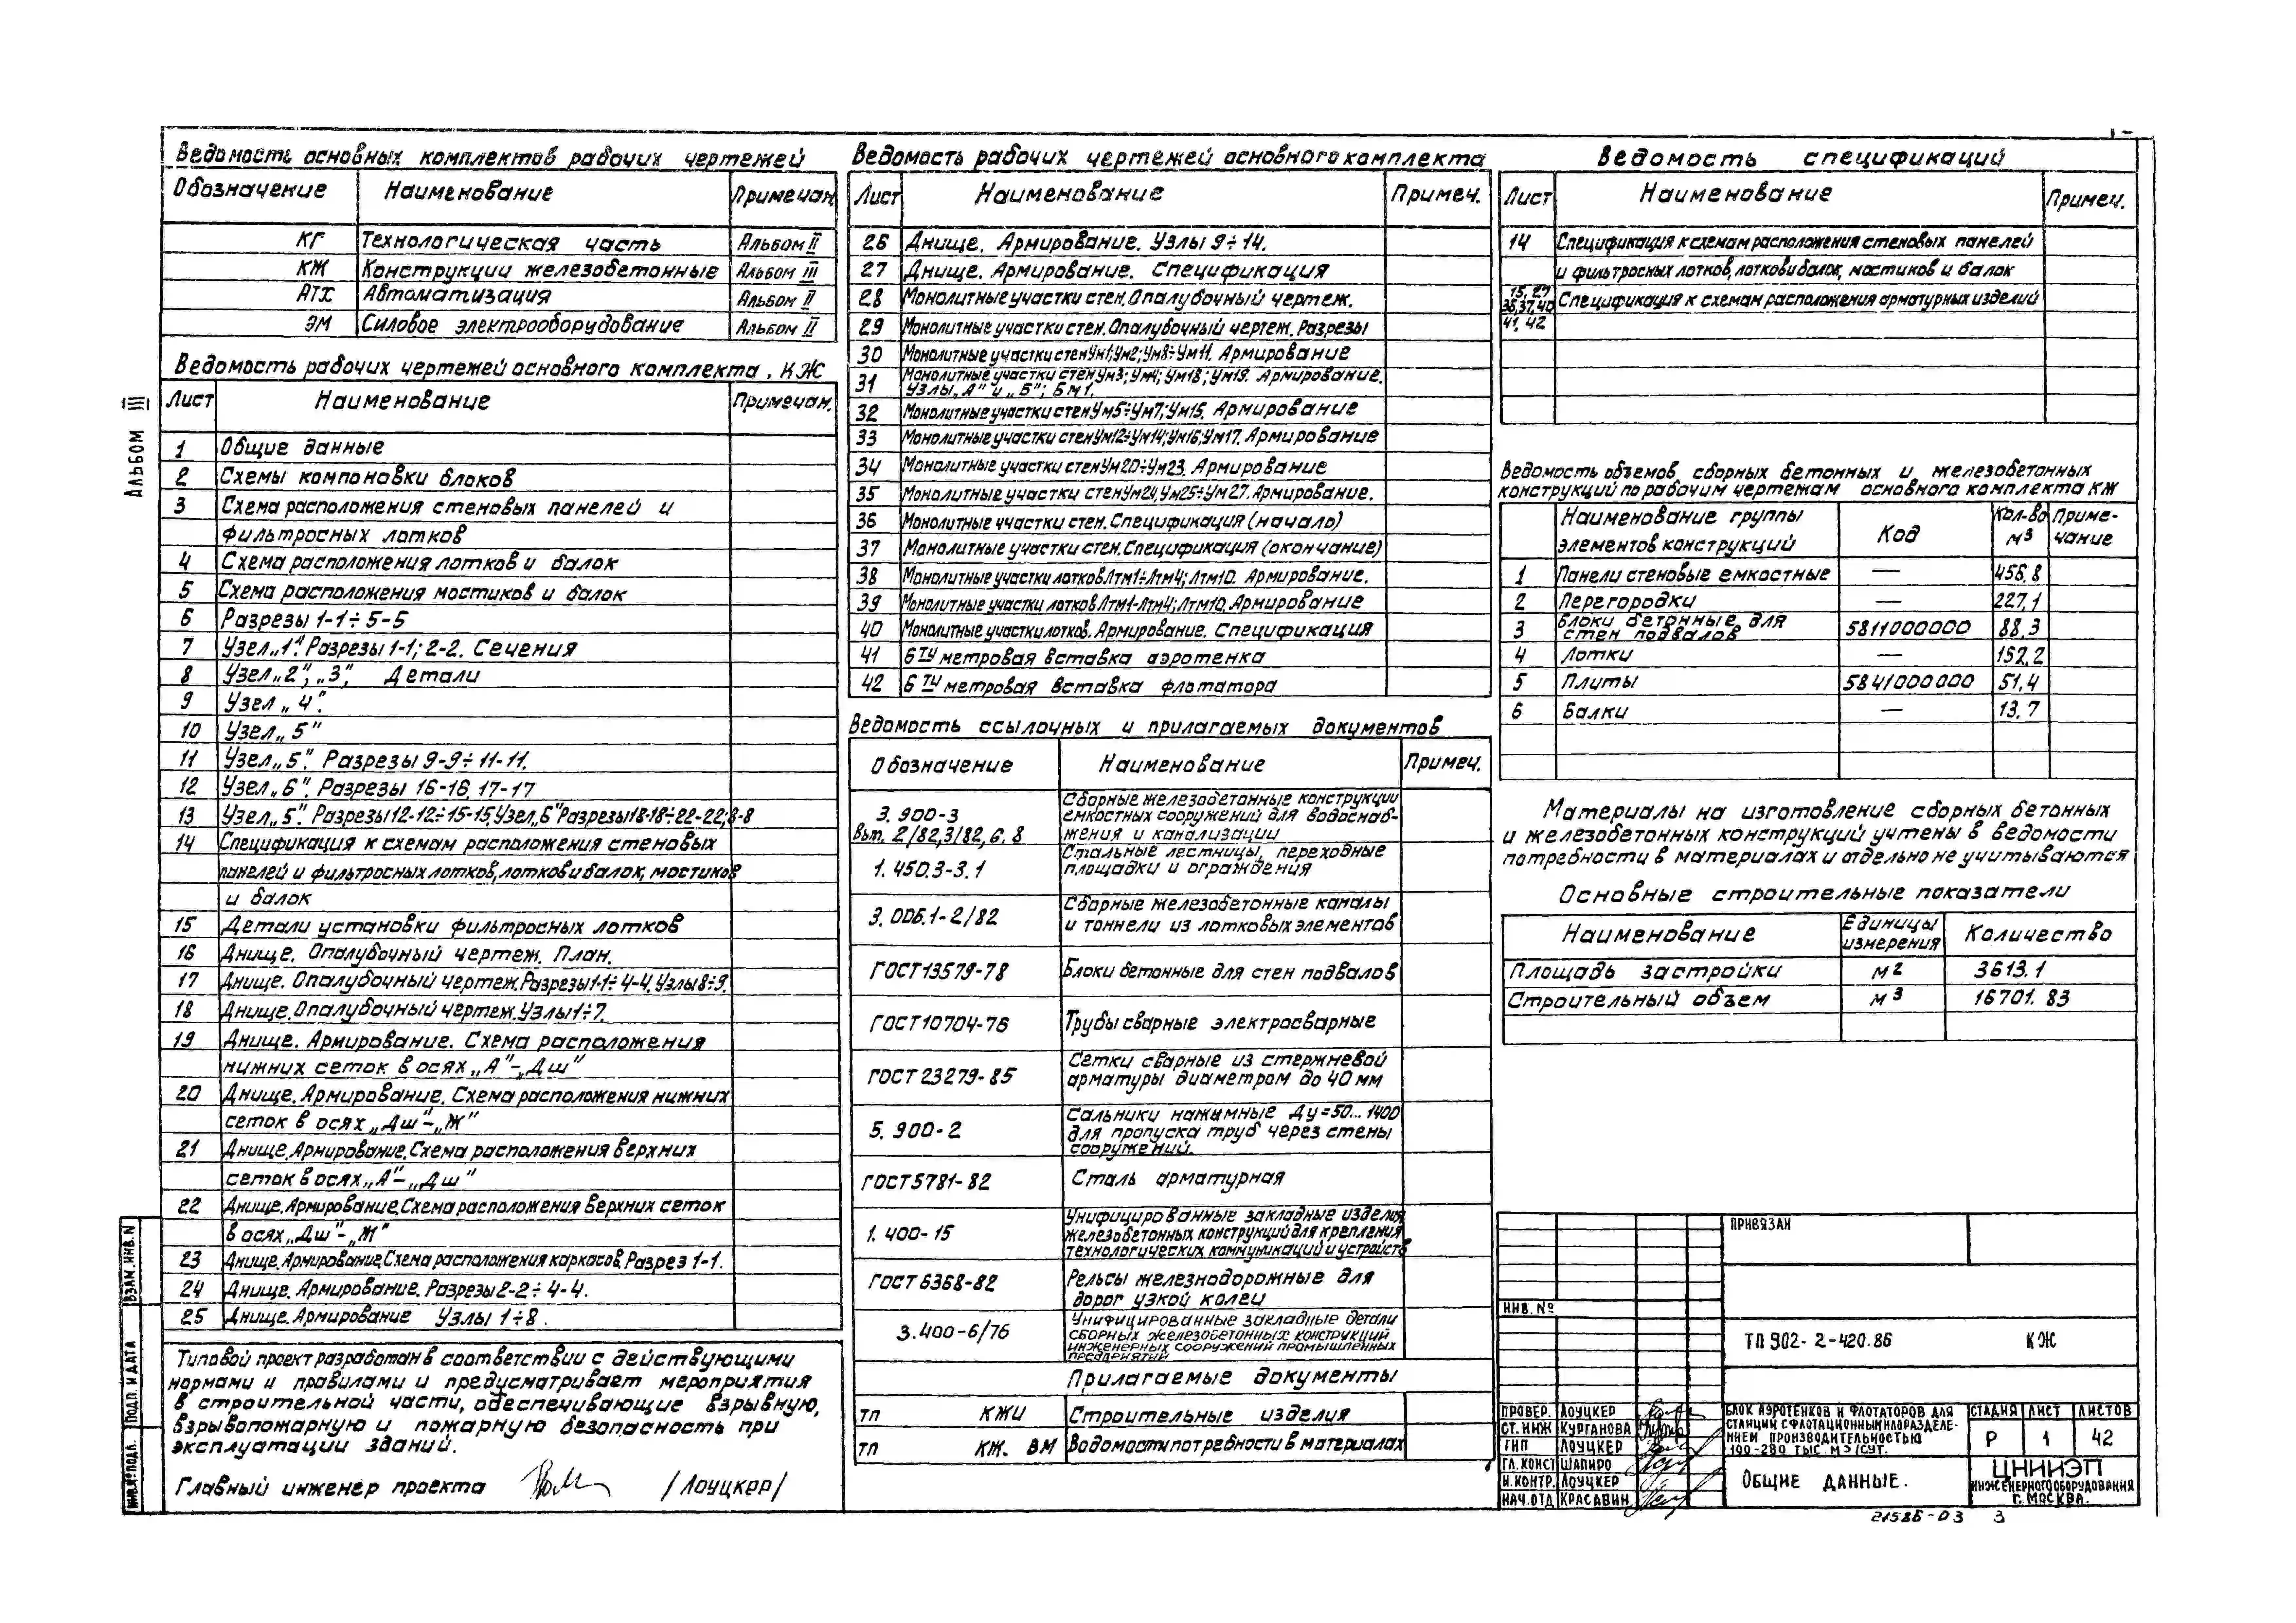 Альбом III
Ведомость основных комплектов рабочих чертежей
Обозначение Наименование Примечан.
КГ Технологическая часть Альбом II
КЖ Конструкции железобетонные Альбом III
АТХ Автоматизация Альбом II
ЭМ Силовое электрооборудование Альбом II
Ведомость рабочих чертежей основного комплекта, КЖ
Лист Наименование Примечан.
1 Общие данные
2 Схемы компоновки блоков
3 Схема расположения стеновых панелей и
фильтросных лотков
4 Схема расположения лотков и балок
5 Схема расположения мостиков и балок
6 Разрезы 1-1÷5-5
7 Узел „1". Разрезы 1-1; 2-2. Сечения
8 Узел „2", „3", Детали
9 Узел „4".
10 Узел „5"
11 Узел „5". Разрезы 9-9÷11-11.
12 Узел „6". Разрезы 16-16, 17-17
13 Узел „5". Разрезы 12-12÷15-15, Узел „6" Разрезы 18-18÷22-22; 8-8
14 Спецификация к схемам расположения стеновых
панелей и фильтросных лотков, лотков и балок, мостиков
и балок
15 Детали установки фильтросных лотков
16 Днище. Опалубочный чертеж. План.
17 Днище. Опалубочный чертеж. Разрезы 1-1÷4-4. Узлы 8÷9.
18 Днище. Опалубочный чертеж. Узлы 1÷7.
19 Днище. Армирование. Схема расположения
нижних сеток в осях „А"-„Дш"
20 Днище. Армирование. Схема расположения нижних
сеток в осях „Дш"-„Ж"
21 Днище. Армирование. Схема расположения верхних
сеток в осях „А"-„Дш"
22 Днище. Армирование. Схема расположения верхних сеток
в осях „Дш"-„Ж"
23 Днище. Армирование. Схема расположения каркасов. Разрез 1-1.
24 Днище. Армирование. Разрезы 2-2÷4-4.
25 Днище. Армирование Узлы 1÷8.
Типовой проект разработан в соответствии с действующими
нормами и правилами и предусматривает мероприятия
в строительной части, обеспечивающие взрывную,
взрывопожарную и пожарную безопасность при
эксплуатации зданий.
Главный инженер проекта /Лоуцкер/
Взам. инв. N
Подп. и дата
Инв. № подл.
Ведомость рабочих чертежей основного комплекта
Лист Наименование Примеч.
26 Днище. Армирование. Узлы 9÷14.
27 Днище. Армирование. Спецификация
28 Монолитные участки стен. Опалубочный чертеж.
29 Монолитные участки стен. Опалубочный чертеж. Разрезы
30 Монолитные участки стен Ум1; Ум2; Ум8÷Ум11. Армирование
31 Монолитные участки стен Ум3; Ум4; Ум18; Ум19. Армирование.
Узлы „А" и „Б"; Бм1.
32 Монолитные участки стен Ум5÷Ум7; Ум15. Армирование
33 Монолитные участки стен Ум12÷Ум14; Ум16; Ум17. Армирование
34 Монолитные участки стен Ум20÷Ум23. Армирование
35 Монолитные участки стен Ум24, Ум25÷Ум27. Армирование.
36 Монолитные участки стен. Спецификация (начало)
37 Монолитные участки стен. Спецификация (окончание)
38 Монолитные участки лотков Лтм1÷Лтм4; Лтм10. Армирование.
39 Монолитные участки лотков Лтм1-Лтм4; Лтм10. Армирование
40 Монолитные участки лотков. Армирование. Спецификация
41 6ти метровая вставка аэротенка
42 6ти метровая вставка флотатора
Ведомость ссылочных и прилагаемых документов
Обозначение Наименование Примеч.
3.900-3
Вып. 2/82, 3/82, 6, 8
Сборные железобетонные конструкции
емкостных сооружений для водоснаб-
жения и канализации
1.450.3-3.1 Стальные лестницы, переходные
площадки и ограждения
3.006.1-2/82 Сборные железобетонные каналы
и тоннели из лотковых элементов
ГОСТ 13579-78 Блоки бетонные для стен подвалов
ГОСТ 10704-76 Трубы сварные электросварные
ГОСТ 23279-85 Сетки сварные из стержневой
арматуры диаметром до 40 мм
5.900-2 Сальники нажимные Ду=50...1400
для пропуска труб через стены
сооружений.
ГОСТ 5781-82 Сталь арматурная
1.400-15 Унифицированные закладные изделия
железобетонных конструкций для крепления
технологических коммуникаций и устройств
ГОСТ 6368-82 Рельсы железнодорожные для
дорог узкой колеи
3.400-6/76 Унифицированные закладные детали
сборных железобетонных конструкций
инженерных сооружений промышленных
предприятий
Прилагаемые документы
тп КЖИ Строительные изделия
тп КЖ. ВМ Водомости потребности в материалах
Ведомость спецификаций
Лист Наименование Примеч.
14 Спецификация к схемам расположения стеновых панелей
и фильтросных лотков, лотков и балок, мостиков и балок
15, 27
36, 37, 40
41, 42
Спецификация к схемам расположения арматурных изделий
Ведомость объемов сборных бетонных и железобетонных
конструкций по рабочим чертежам основного комплекта КЖ
Наименование группы
элементов конструкций
Код
Кол-во
м3
Приме-
чание
1 Панели стеновые емкостные — 456.8
2 Перегородки — 227,1
3 Блоки бетонные для
стен подвалов 5811000000 88,3
4 Лотки — 152,2
5 Плиты 5841000000 51,4
6 Балки — 13.7
Материалы на изготовление сборных бетонных
и железобетонных конструкций учтены в ведомости
потребности в материалах и отдельно не учитываются
Основные строительные показатели
Наименование Единицы
измерения Количество
Площадь застройки м2 3613.1
Строительный объем м3 16701.83
Привязан
Инв. №
ТП 902-2-420.86 КЖ
Провер. Лоуцкер
Ст. инж Курганова
ГИП Лоуцкер
Гл. конст Шапиро
Н. контр. Лоуцкер
Нач. отд Красавин
Блок аэротенков и флотаторов для
станции с флотационным илоразделе-
нием производительностью
100-280 тыс. м3/сут.
Стадия Лист Листов
Р 1 42
Общие данные.
ЦНИИЭП
инженерного оборудования
г. Москва.
21586-03 3